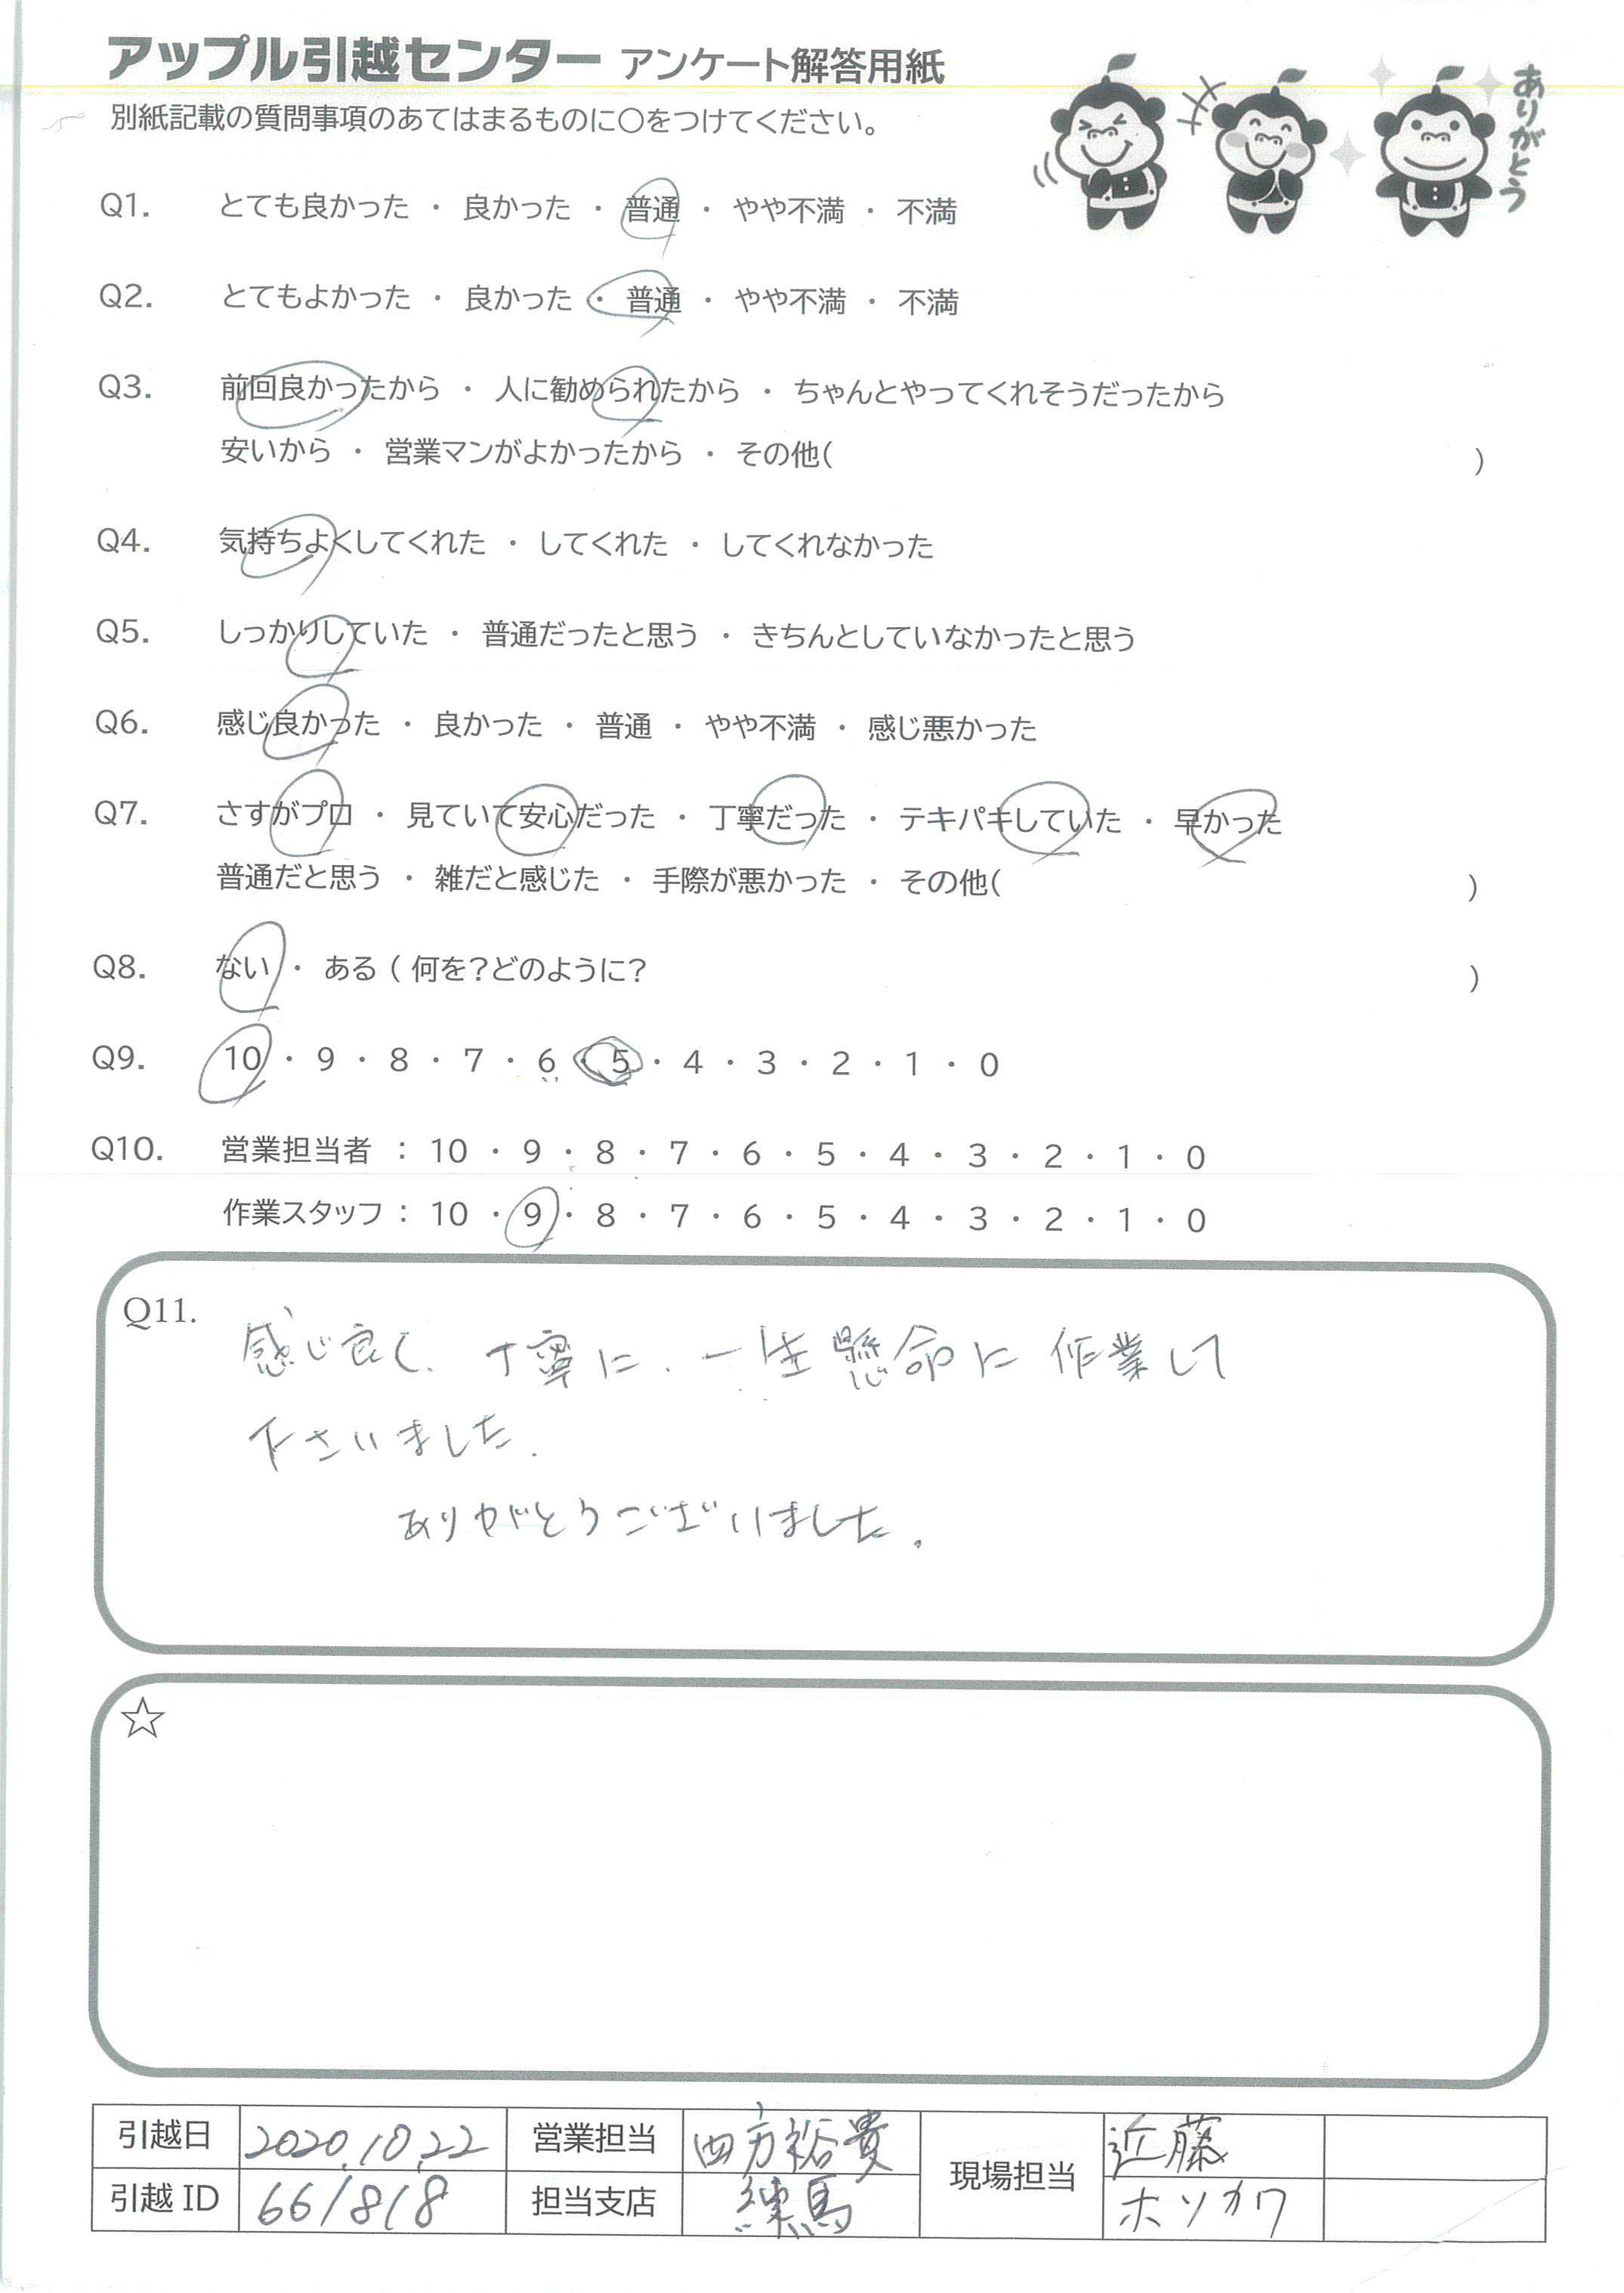 アップル引越センター アンケート解答用紙
別紙記載の質問事項のあてはまるものに○をつけてください。
ありがとう
Q1. とても良かった ・ 良かった ・ 普通 ・ やや不満 ・ 不満
Q2. とてもよかった ・ 良かった ・ 普通 ・ やや不満 ・ 不満
Q3. 前回良かったから ・ 人に勧められたから ・ ちゃんとやってくれそうだったから
安いから ・ 営業マンがよかったから ・ その他( )
Q4. 気持ちよくしてくれた ・ してくれた ・ してくれなかった
Q5. しっかりしていた ・ 普通だったと思う ・ きちんとしていなかったと思う
Q6. 感じ良かった ・ 良かった ・ 普通 ・ やや不満 ・ 感じ悪かった
Q7. さすがプロ ・ 見ていて安心だった ・ 丁寧だった ・ テキパキしていた ・ 早かった
普通だと思う ・ 雑だと感じた ・ 手際が悪かった ・ その他( )
Q8. ない ・ ある ( 何を?どのように? )
Q9. 10 ・ 9 ・ 8 ・ 7 ・ 6 ・ 5 ・ 4 ・ 3 ・ 2 ・ 1 ・ 0
Q10. 営業担当者 : 10 ・ 9 ・ 8 ・ 7 ・ 6 ・ 5 ・ 4 ・ 3 ・ 2 ・ 1 ・ 0
作業スタッフ : 10 ・ 9 ・ 8 ・ 7 ・ 6 ・ 5 ・ 4 ・ 3 ・ 2 ・ 1 ・ 0
Q11. 感じ良く、丁寧に、一生懸命に作業して
下さいました.
ありがとうございました.
☆
引越日 2020.10.22 営業担当 四方裕貴 現場担当 近藤
引越 ID 661818 担当支店 練馬 ホソカワ